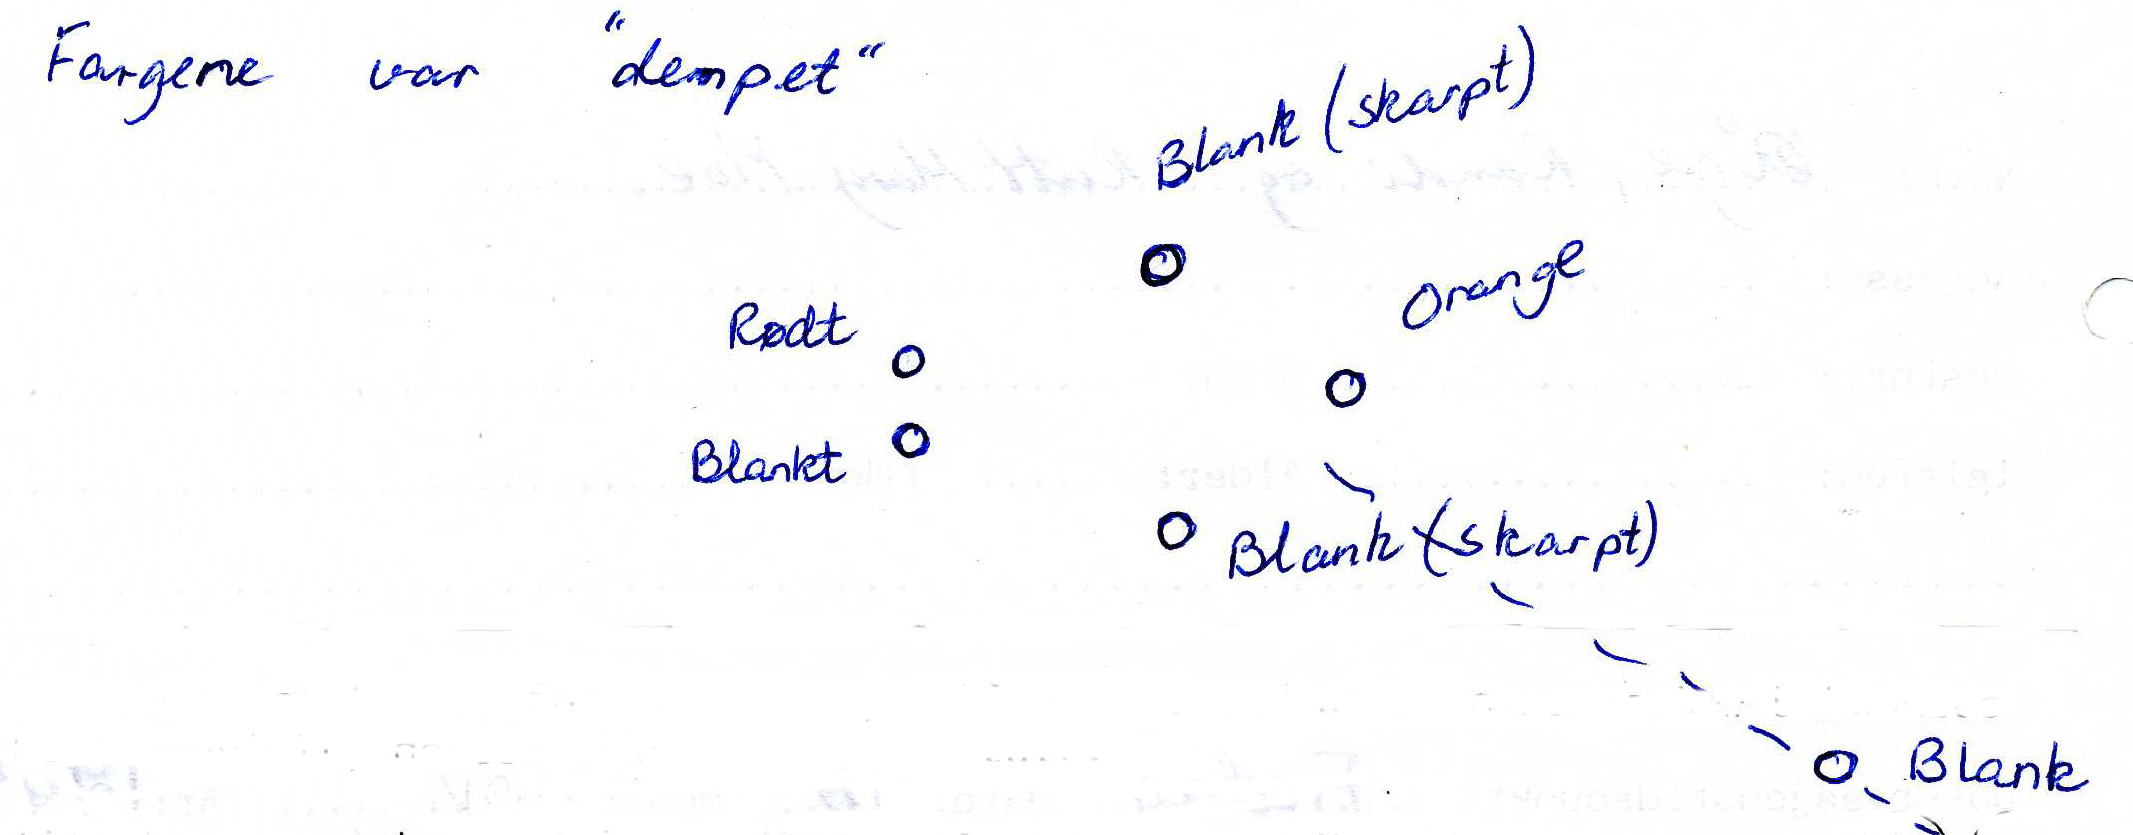 Fargene var "dempet"
Blank (skarpt)
Orange
Rødt
Blankt
Blank (skarpt)
Blank